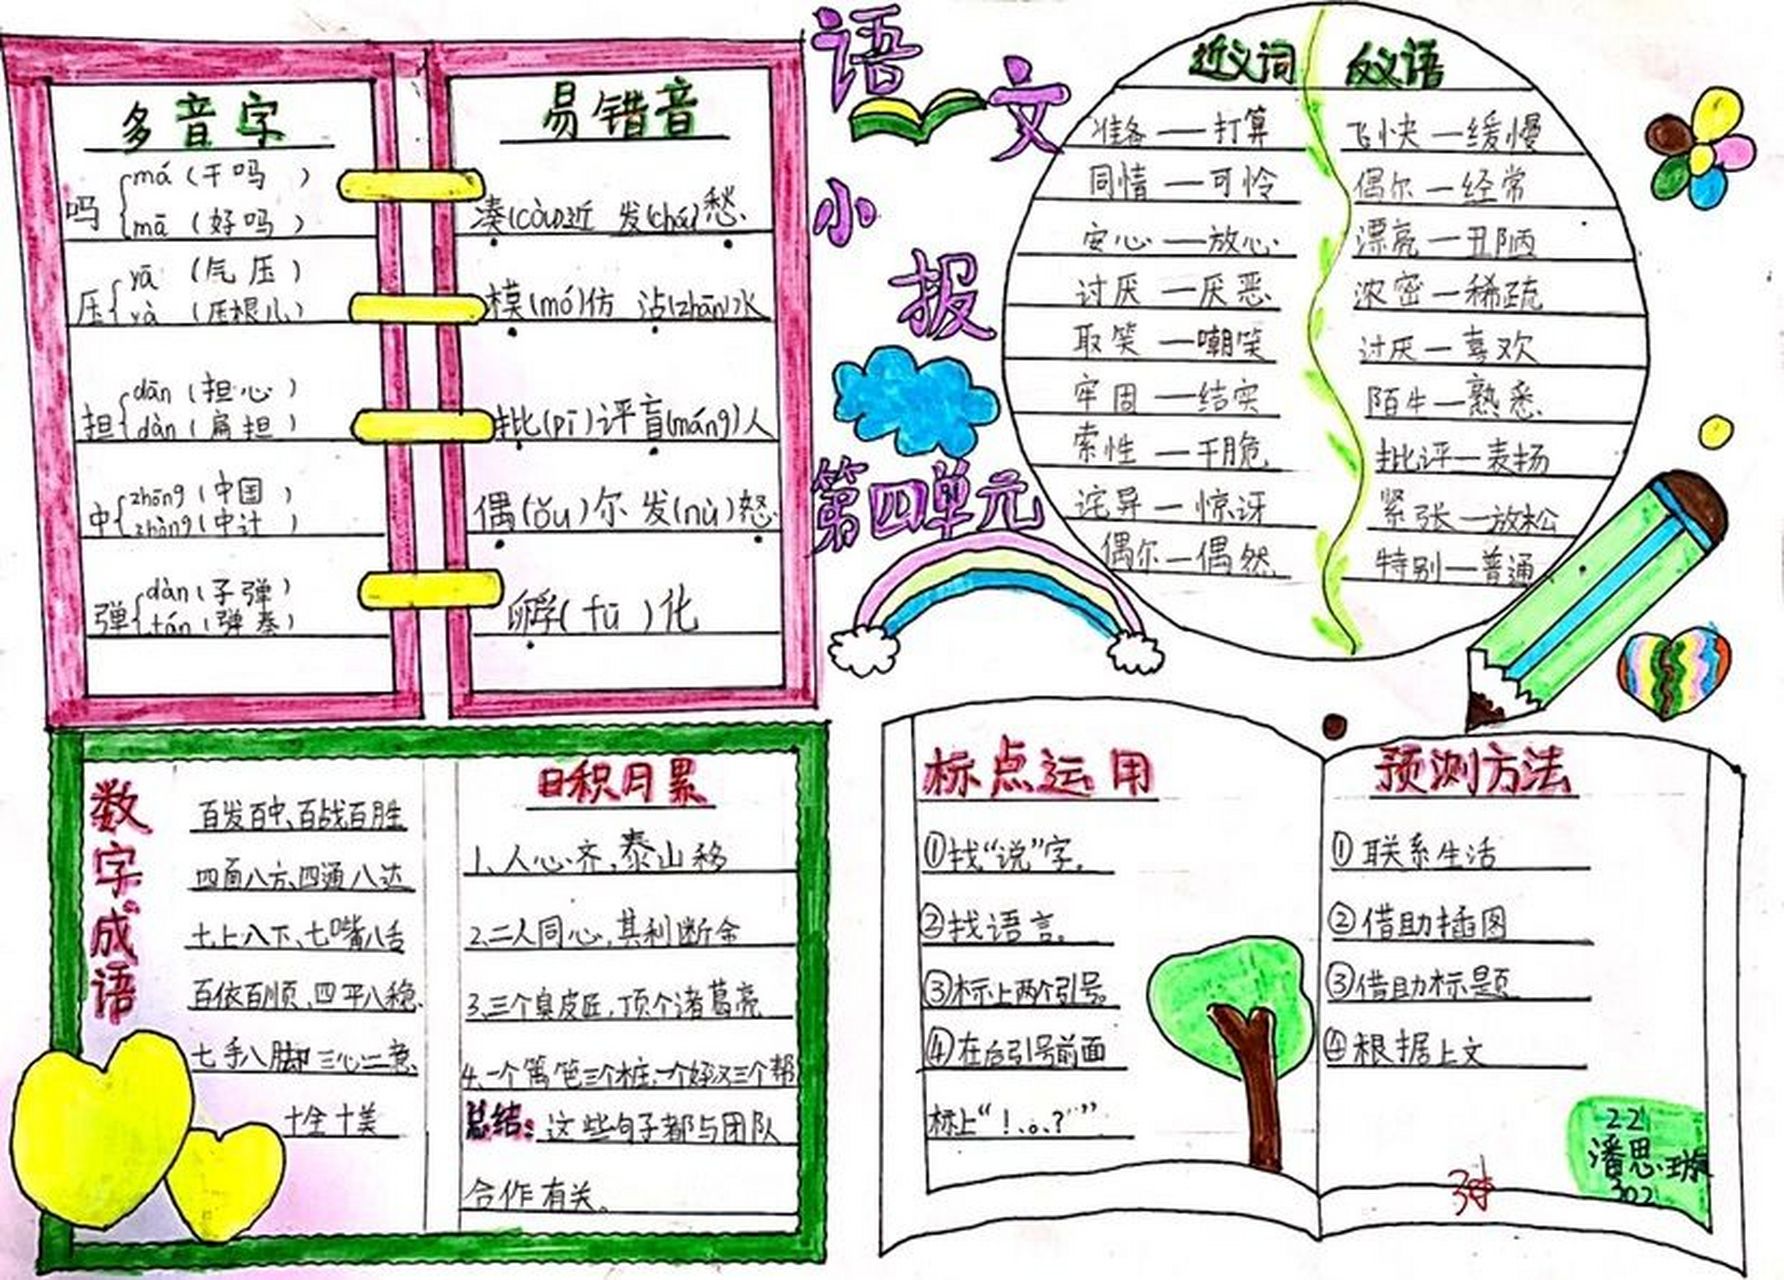 语文小报
第四单元
多音字
吗 má(干吗)
mā(好吗)
压 yā(气压)
yà(压根儿)
担 dān(担心)
dàn(扁担)
中 zhōng(中国)
zhòng(中计)
弹 dàn(子弹)
tán(弹奏)
易错音
凑(còu)近 发(chóu)愁
模(mó)仿 沾(zhān)水
批(pī)评 盲(máng)人
偶(ǒu)尔 发(nù)怒
孵(fū)化
近义词
准备—打算
同情—可怜
安心—放心
讨厌—厌恶
取笑—嘲笑
牢固—结实
索性—干脆
诧异—惊讶
偶尔—偶然
反义语
飞快—缓慢
偶尔—经常
漂亮—丑陋
浓密—稀疏
讨厌—喜欢
陌生—熟悉
批评—表扬
紧张—放松
特别—普通
数字成语
百发百中、百战百胜
四面八方、四通八达
七上八下、七嘴八舌
百依百顺、四平八稳
七手八脚 三心二意
十全十美
日积月累
1、人心齐,泰山移
2、二人同心,其利断金
3、三个臭皮匠,顶个诸葛亮
4、一个篱笆三个桩,一个好汉三个帮
总结:这些句子都与团队
合作有关。
标点运用
①找“说”字。
②找语言。
③标上两个引号。
④在后引号前面
标上“！。、？”
预测方法
①联系生活
②借助插图
③借助标题
④根据上文
221
302